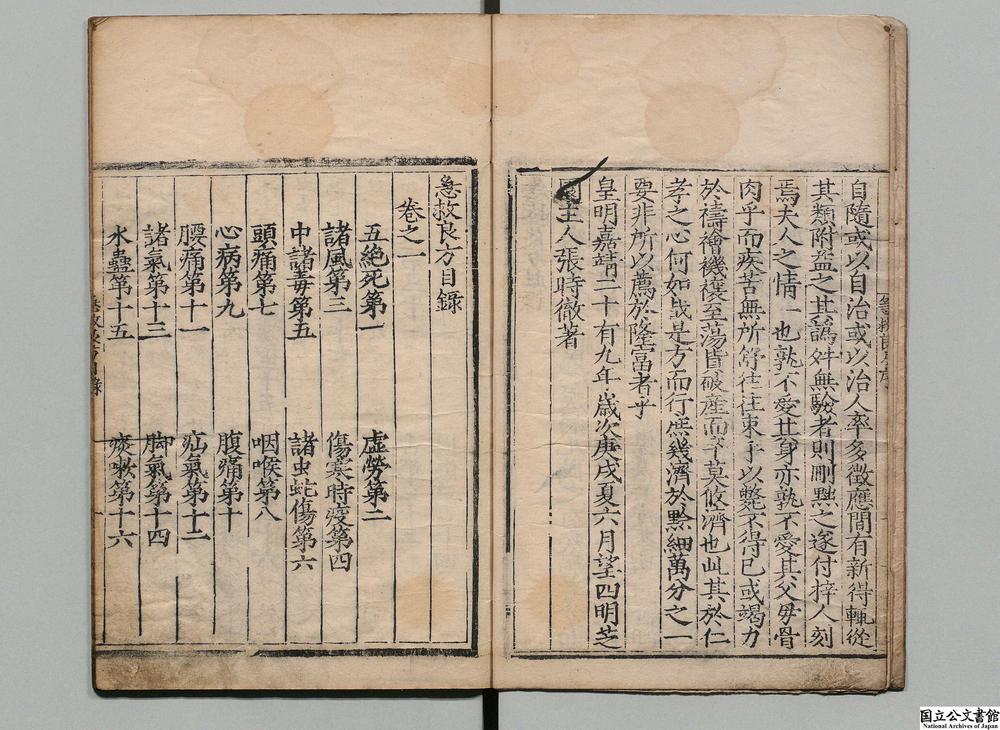 自隨或以自治或以治人率多徵應間有新得輒從
其類附益之其譌舛無驗者則刪黜之遂付梓人刻
焉夫人之情一也孰不愛其身亦孰不愛其父母骨
肉乎而疾苦無所紓往往束手以斃不得已或竭力
於禱禬禨禳至蕩貲破産而卒莫攸濟也此其於仁
孝之心何如哉是方而行庶幾濟於黔細萬分之一
要非所以薦於隆富者乎
皇明嘉靖二十有九年歲次庚戌夏六月望四明芝
園主人張時徹著
急救良方目錄
卷之一
五絶死第一 虛勞第二
諸風第三 傷寒時疫第四
中諸毒第五 諸虫蛇傷第六
頭痛第七 咽喉第八
心病第九 腹痛第十
腰痛第十一 疝氣第十二
諸氣第十三 脚氣第十四
水蠱第十五 痰嗽第十六
国立公文書館
National Archives of Japan